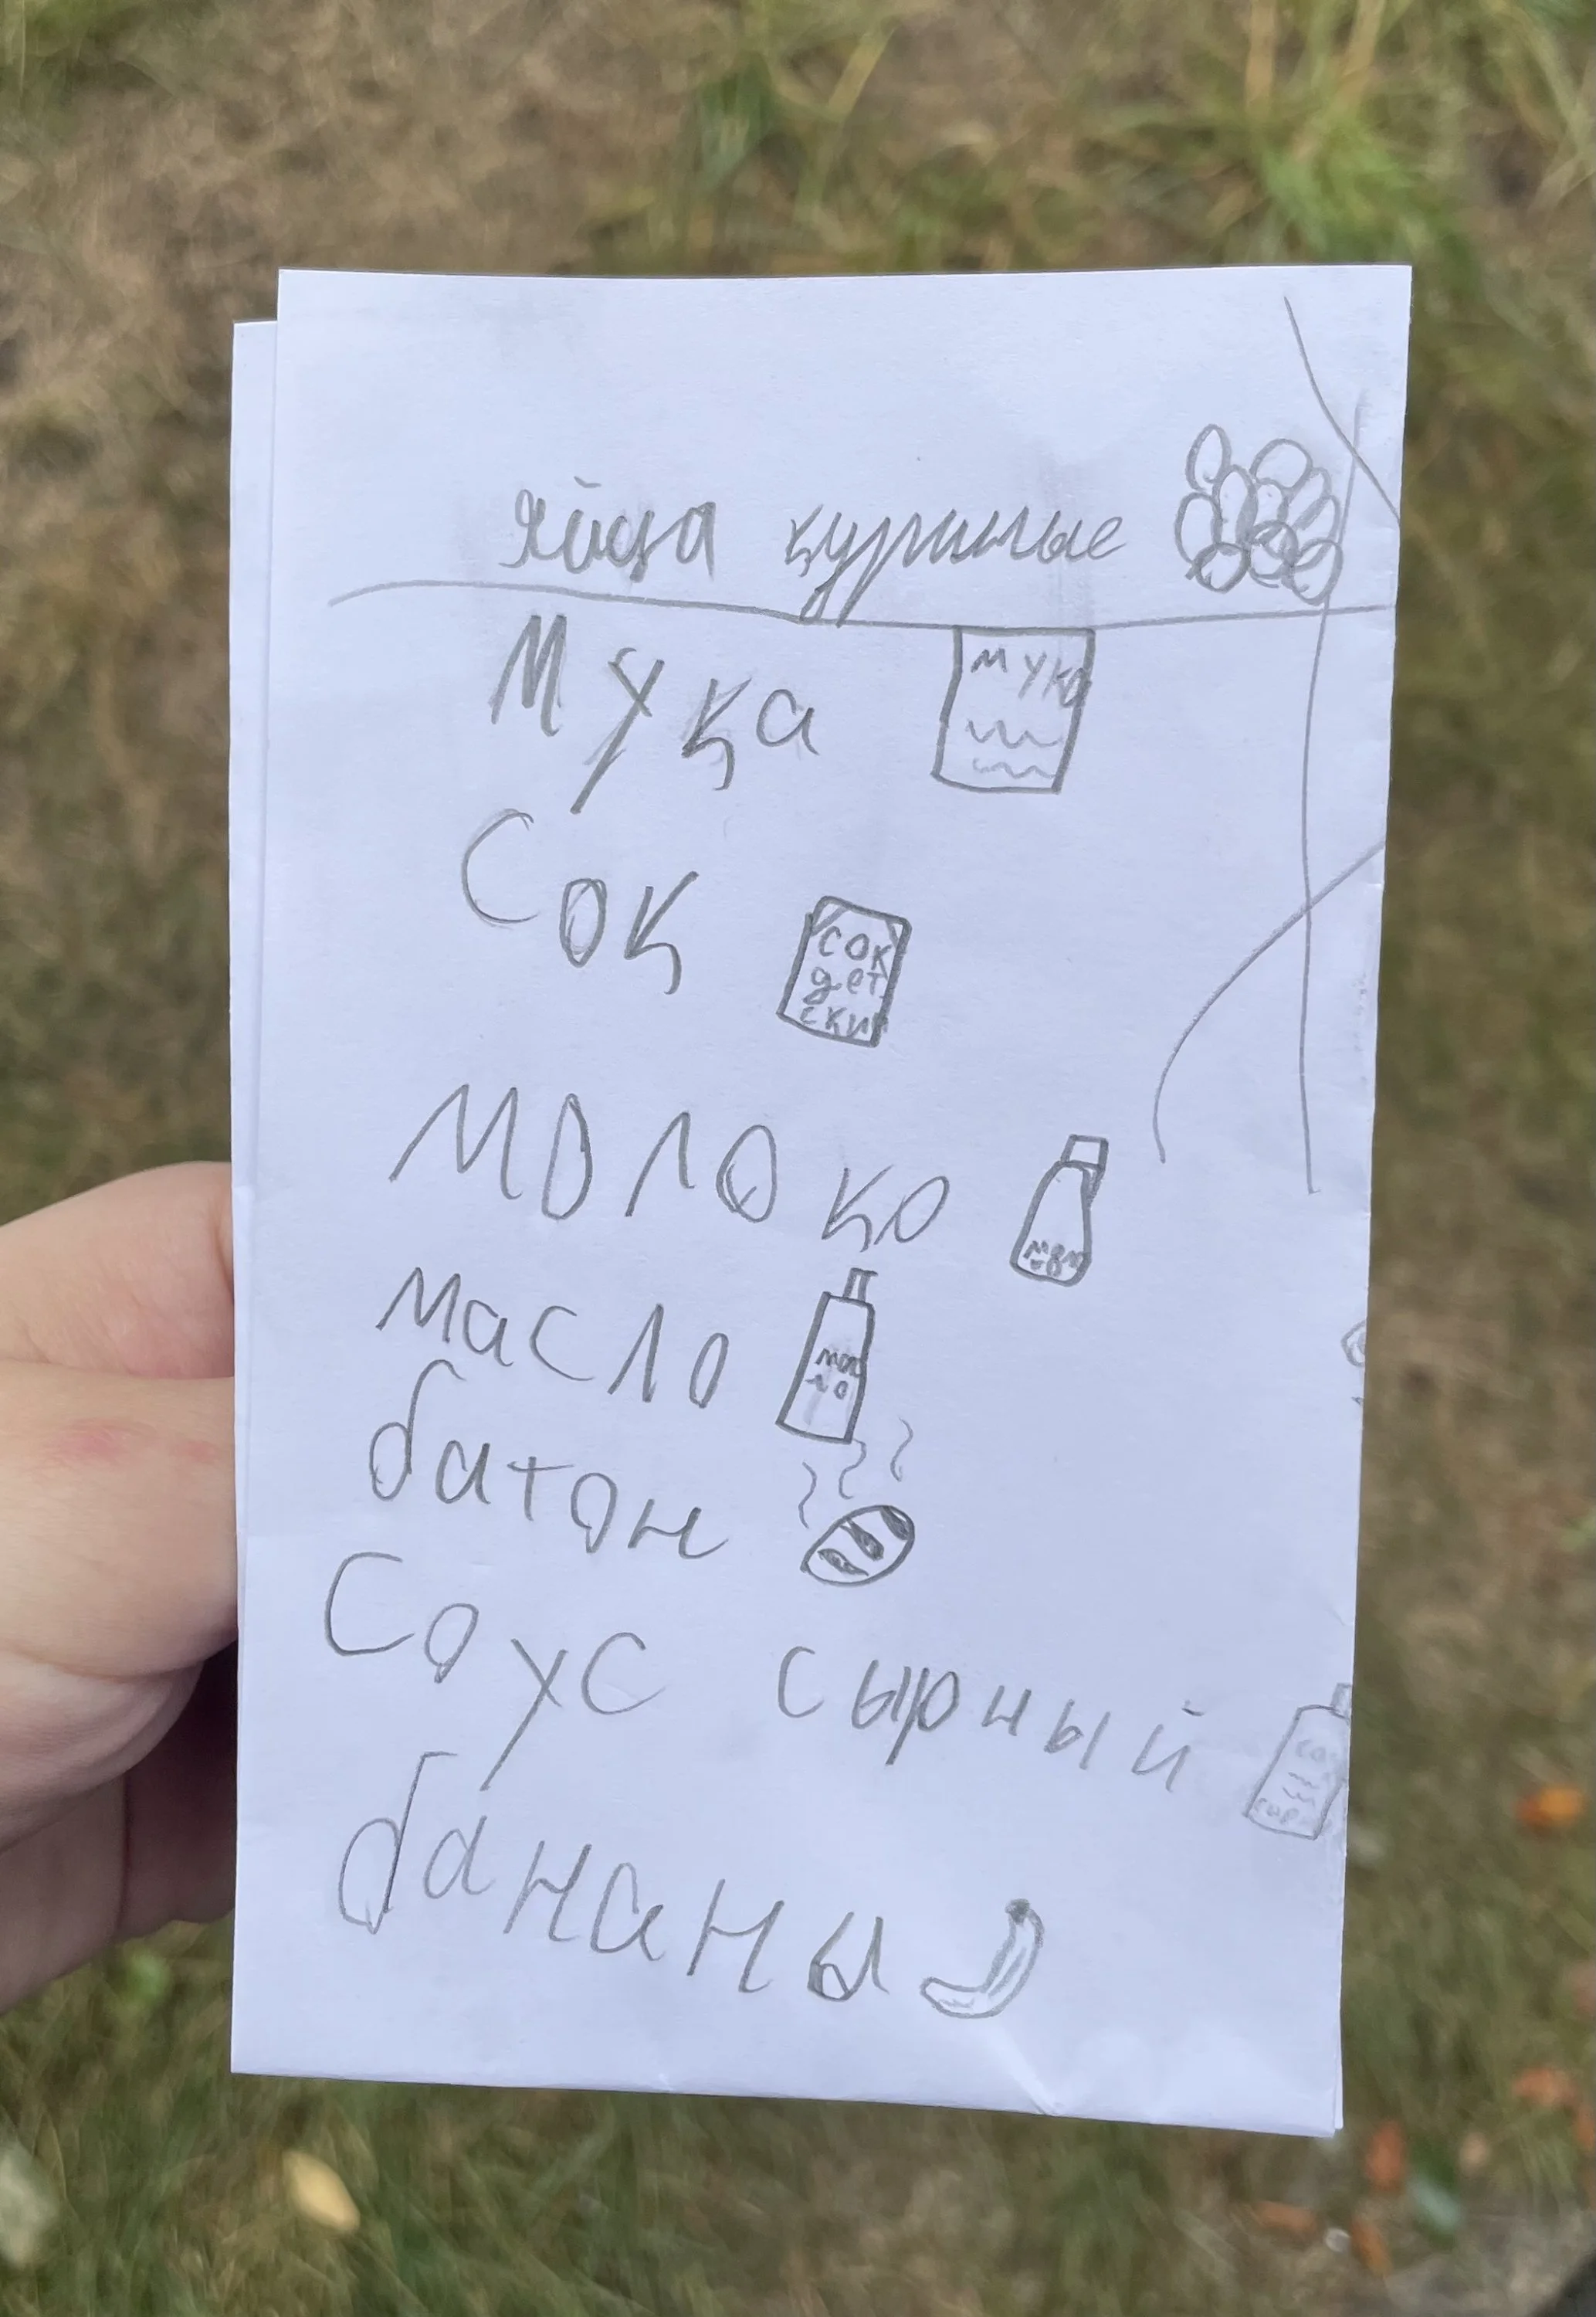 яйца куриные
Мука
мука
Сок
сок
дет
ский
молоко
мол
масло
мас
ло
батон
Соус сырный
соу
сыр
бананы